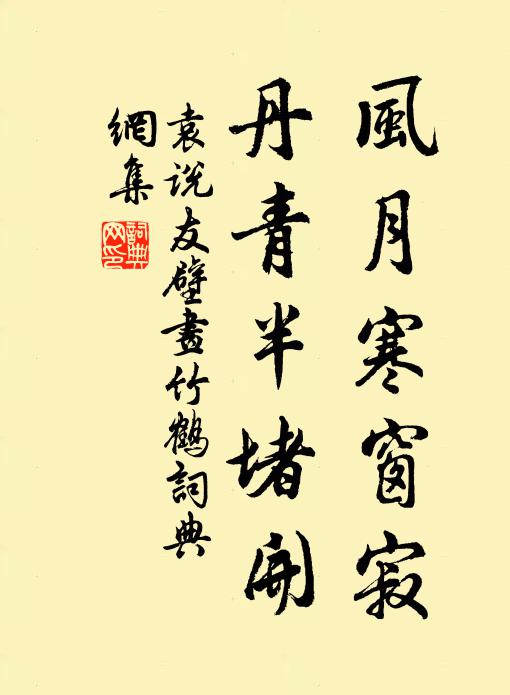 風月寒窗寂
丹青半堵開
袁说友壁畫竹鶴詞典
網集
詞典
网印